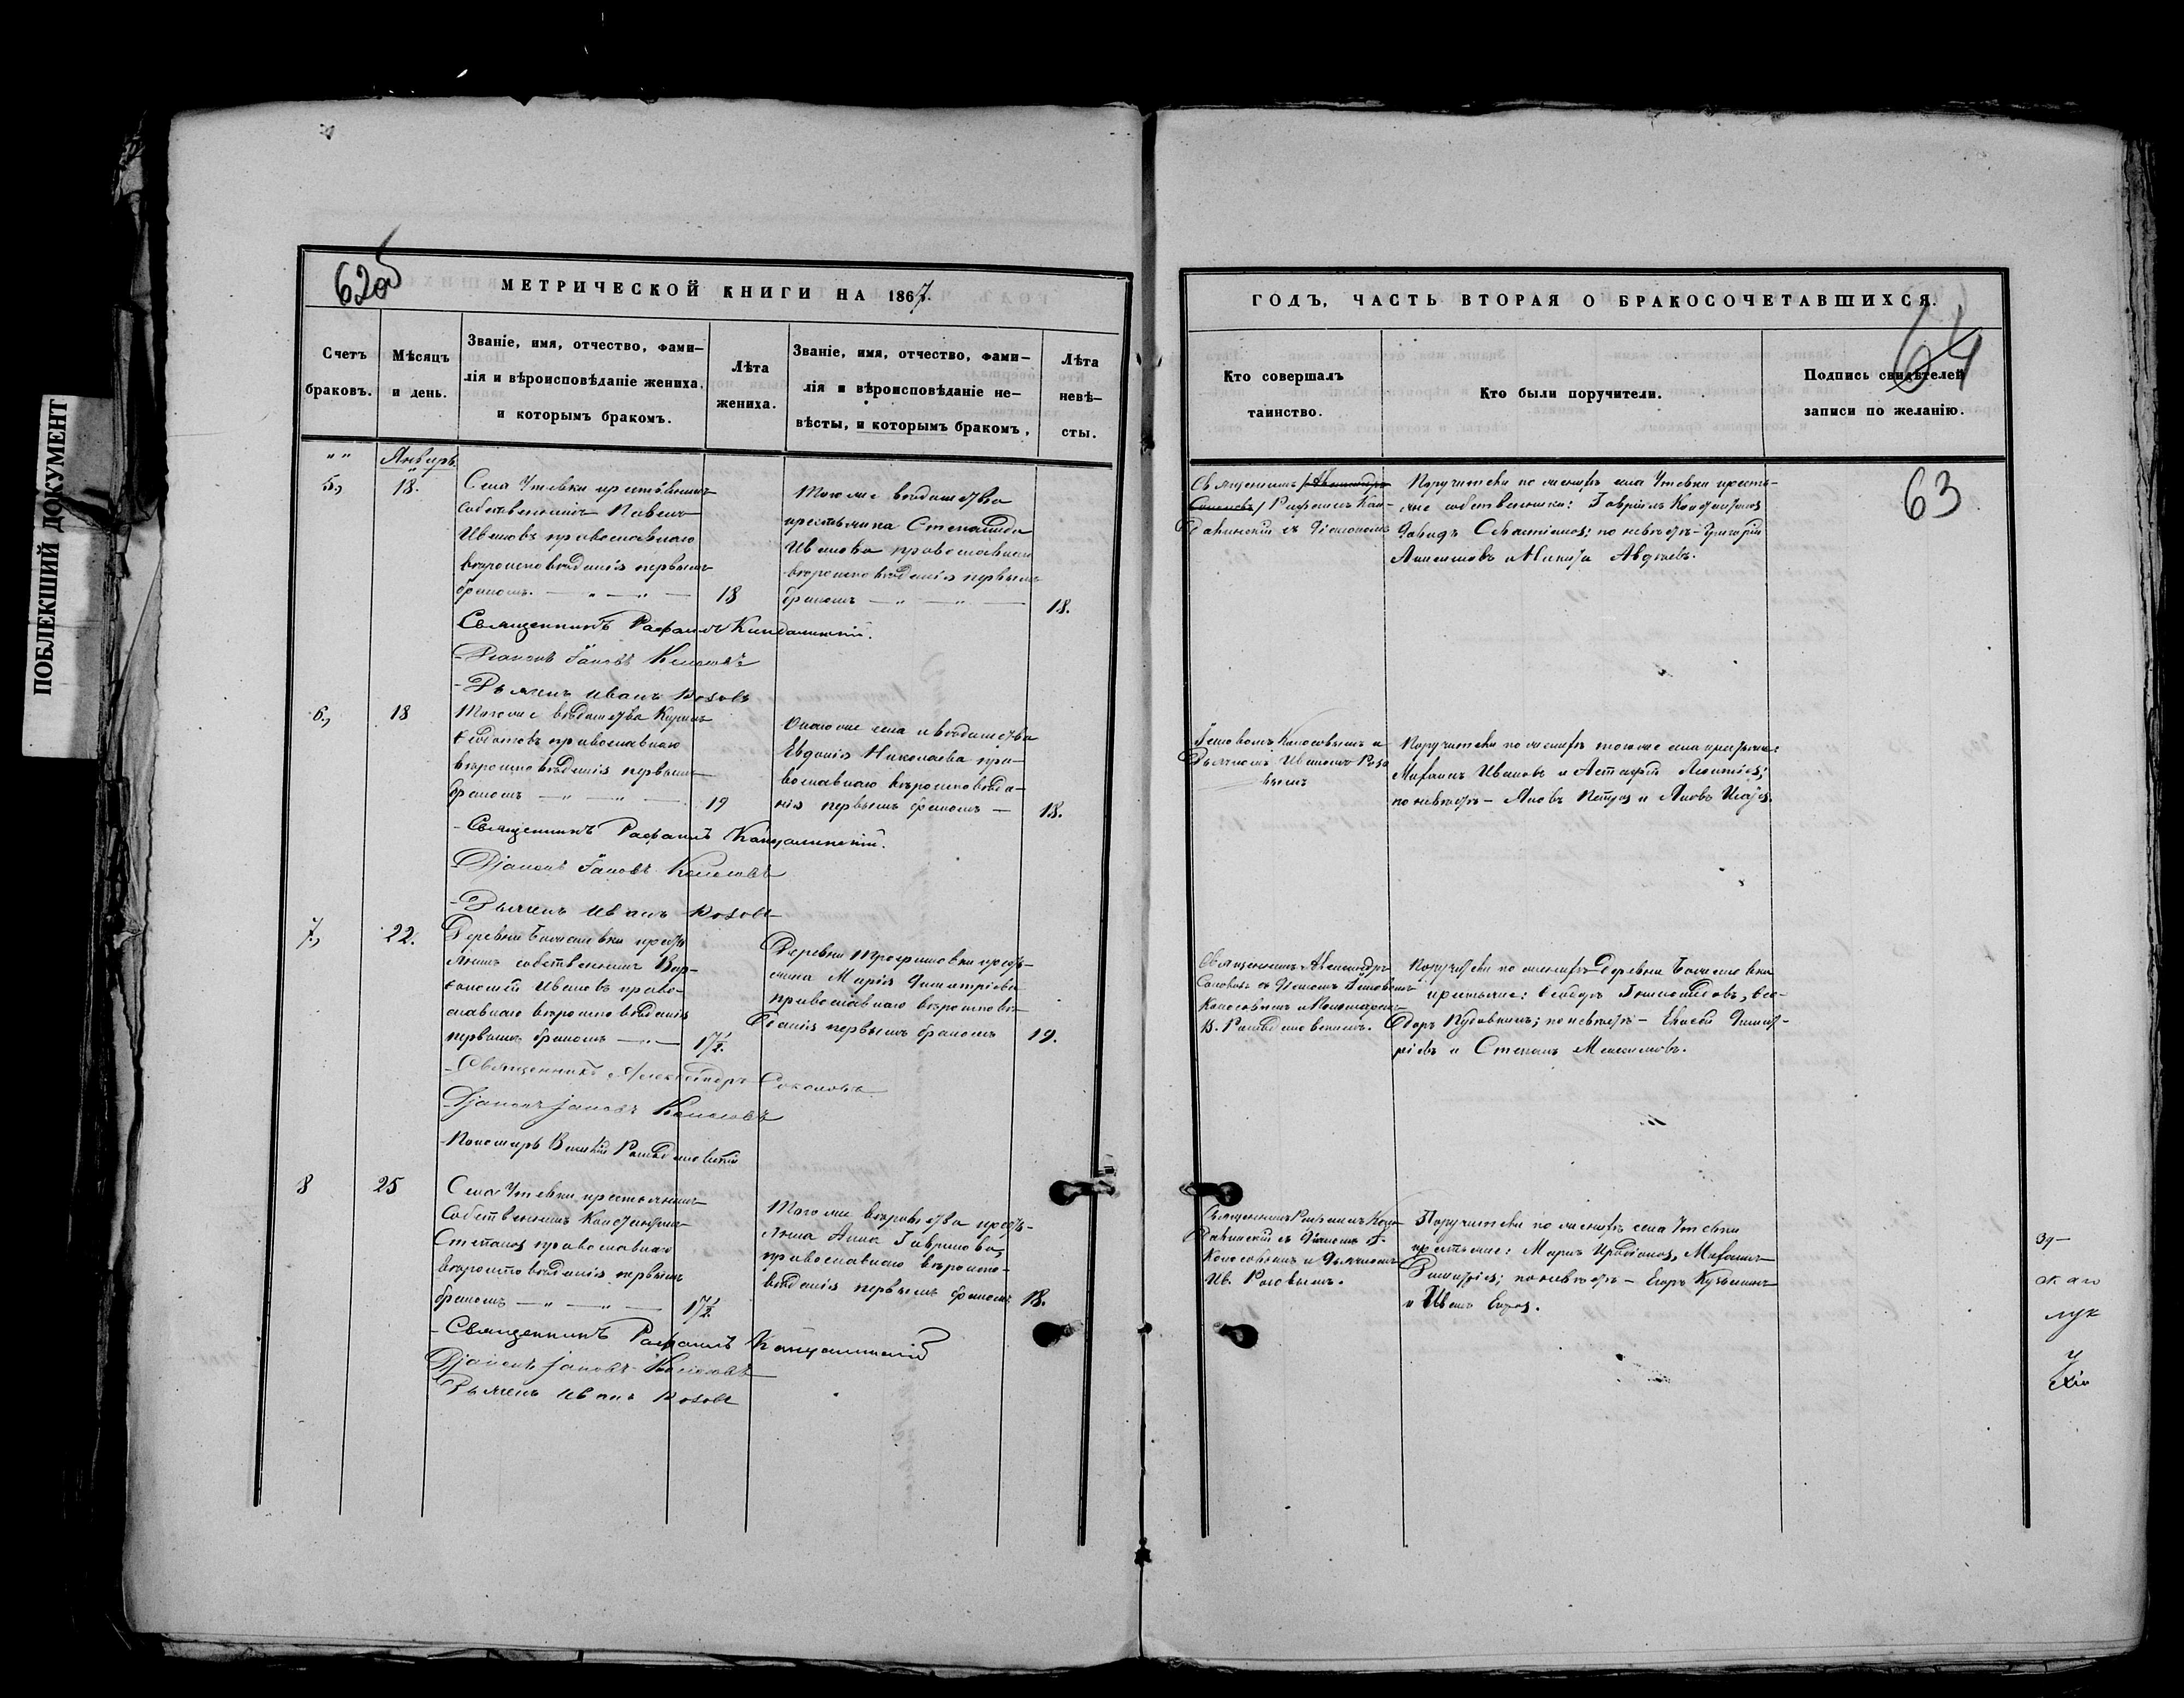 ПОБЛЕКШИЙ ДОКУМЕНТ
62об
МЕТРИЧЕСКОЙ КНИГИ НА 1867.
Счетъ
браковъ.
Мѣсяцъ
и день.
Званіе, имя, отчество, фами-
лія и вѣроисповѣданіе жениха,
и которымъ бракомъ.
Лѣта
жениха.
Званіе, имя, отчество, фами-
лія и вѣроисповѣданіе не-
вѣсты, и которымъ бракомъ,
Лѣта
невѣ-
сты.
" "
Январь
5,
18.
Села Утевки крестьянинъ
собственникъ Павелъ
Ивановъ православнаго
вѣроисповѣданія первымъ
бракомъ. — " — " —
18
Тогоже вѣдомства
крестьянка Степанида
Иванова православнаго
вѣроисповѣданія первымъ
бракомъ — " — " —
18.
Священникъ Рафаилъ Кандалинскій.
Діаконъ Іаковъ Колосовъ
Дьячекъ Иванъ Розовъ
6,
18
Тогоже вѣдомства
Ѳедотовъ православнаго
вѣроисповѣданія первымъ
бракомъ — " — " —
19
Онагоже села и вѣдомства
Евдокія Николаева пра-
вославнаго вѣроисповѣда-
нія первымъ бракомъ —
18.
Священникъ Рафаилъ Кандалинскій.
Діаконъ Іаковъ Колосовъ
Дьячекъ Иванъ Розовъ
7,
22.
Деревни кресть
янинъ собственникъ Вар-
ѳоломей Ивановъ право-
славнаго вѣроисповѣданія
первымъ бракомъ — " —
17½.
Деревни Трофимовки кресть-
янка Марія Димитріева
православнаго вѣроисповѣ-
данія первымъ бракомъ
19.
Священникъ Александръ Соколовъ
Діаконъ Іаковъ Колосовъ
Пономарь Василій
8
25
Села Утевки крестьянинъ
собственникъ Константинъ
Степановъ православнаго
вѣроисповѣданія первымъ
бракомъ — " — " —
17½.
Тогоже вѣдомства кресть-
янка Анна Гаврилова,
православнаго вѣроиспо-
вѣданія первымъ бракомъ
18.
Священникъ Рафаилъ Кандалинскій
Діаконъ Іаковъ Колосовъ
Дьячекъ Иванъ Розовъ
ГОДЪ, ЧАСТЬ ВТОРАЯ О БРАКОСОЧЕТАВШИХСЯ.
64
Кто совершалъ
таинство.
Кто были поручители.
Подпись свидѣтелей
записи по желанію.
63
Священникъ Александръ
Соколовъ Рафаилъ Кан-
далинскій съ Діакономъ
Поручители по женихѣ села Утевки кресть-
яне собственники: Гавріилъ Константиновъ
Давидъ Севастіановъ; по невѣстѣ – Григорій
и Никита Авдѣевъ.
Іаковомъ Колосовымъ и
Дьячкомъ Иваномъ Розо
вымъ
Поручители по женихѣ тогоже села крестьяне:
Михаилъ Ивановъ и Астафій Леонтіевъ;
по невѣстѣ – Яковъ Петровъ и Яковъ
Священникъ Александръ
Соколовъ съ Діакономъ Іаковомъ
Колосовымъ и Пономаремъ
В.
Поручители по женихѣ Деревни
крестьяне: Ѳеодоръ Ѳео-
доръ по невѣстѣ – Евсей Димит-
ріевъ и Степанъ Максимовъ.
Священникъ Рафаилъ Кан-
далинскій съ Діакономъ І.
Колосовымъ и Дьячкомъ
Ив. Розовымъ.
Поручители по женихѣ села Утевки
крестьяне: Михаилъ
по невѣстѣ – Егоръ Кузьминъ
и Иванъ